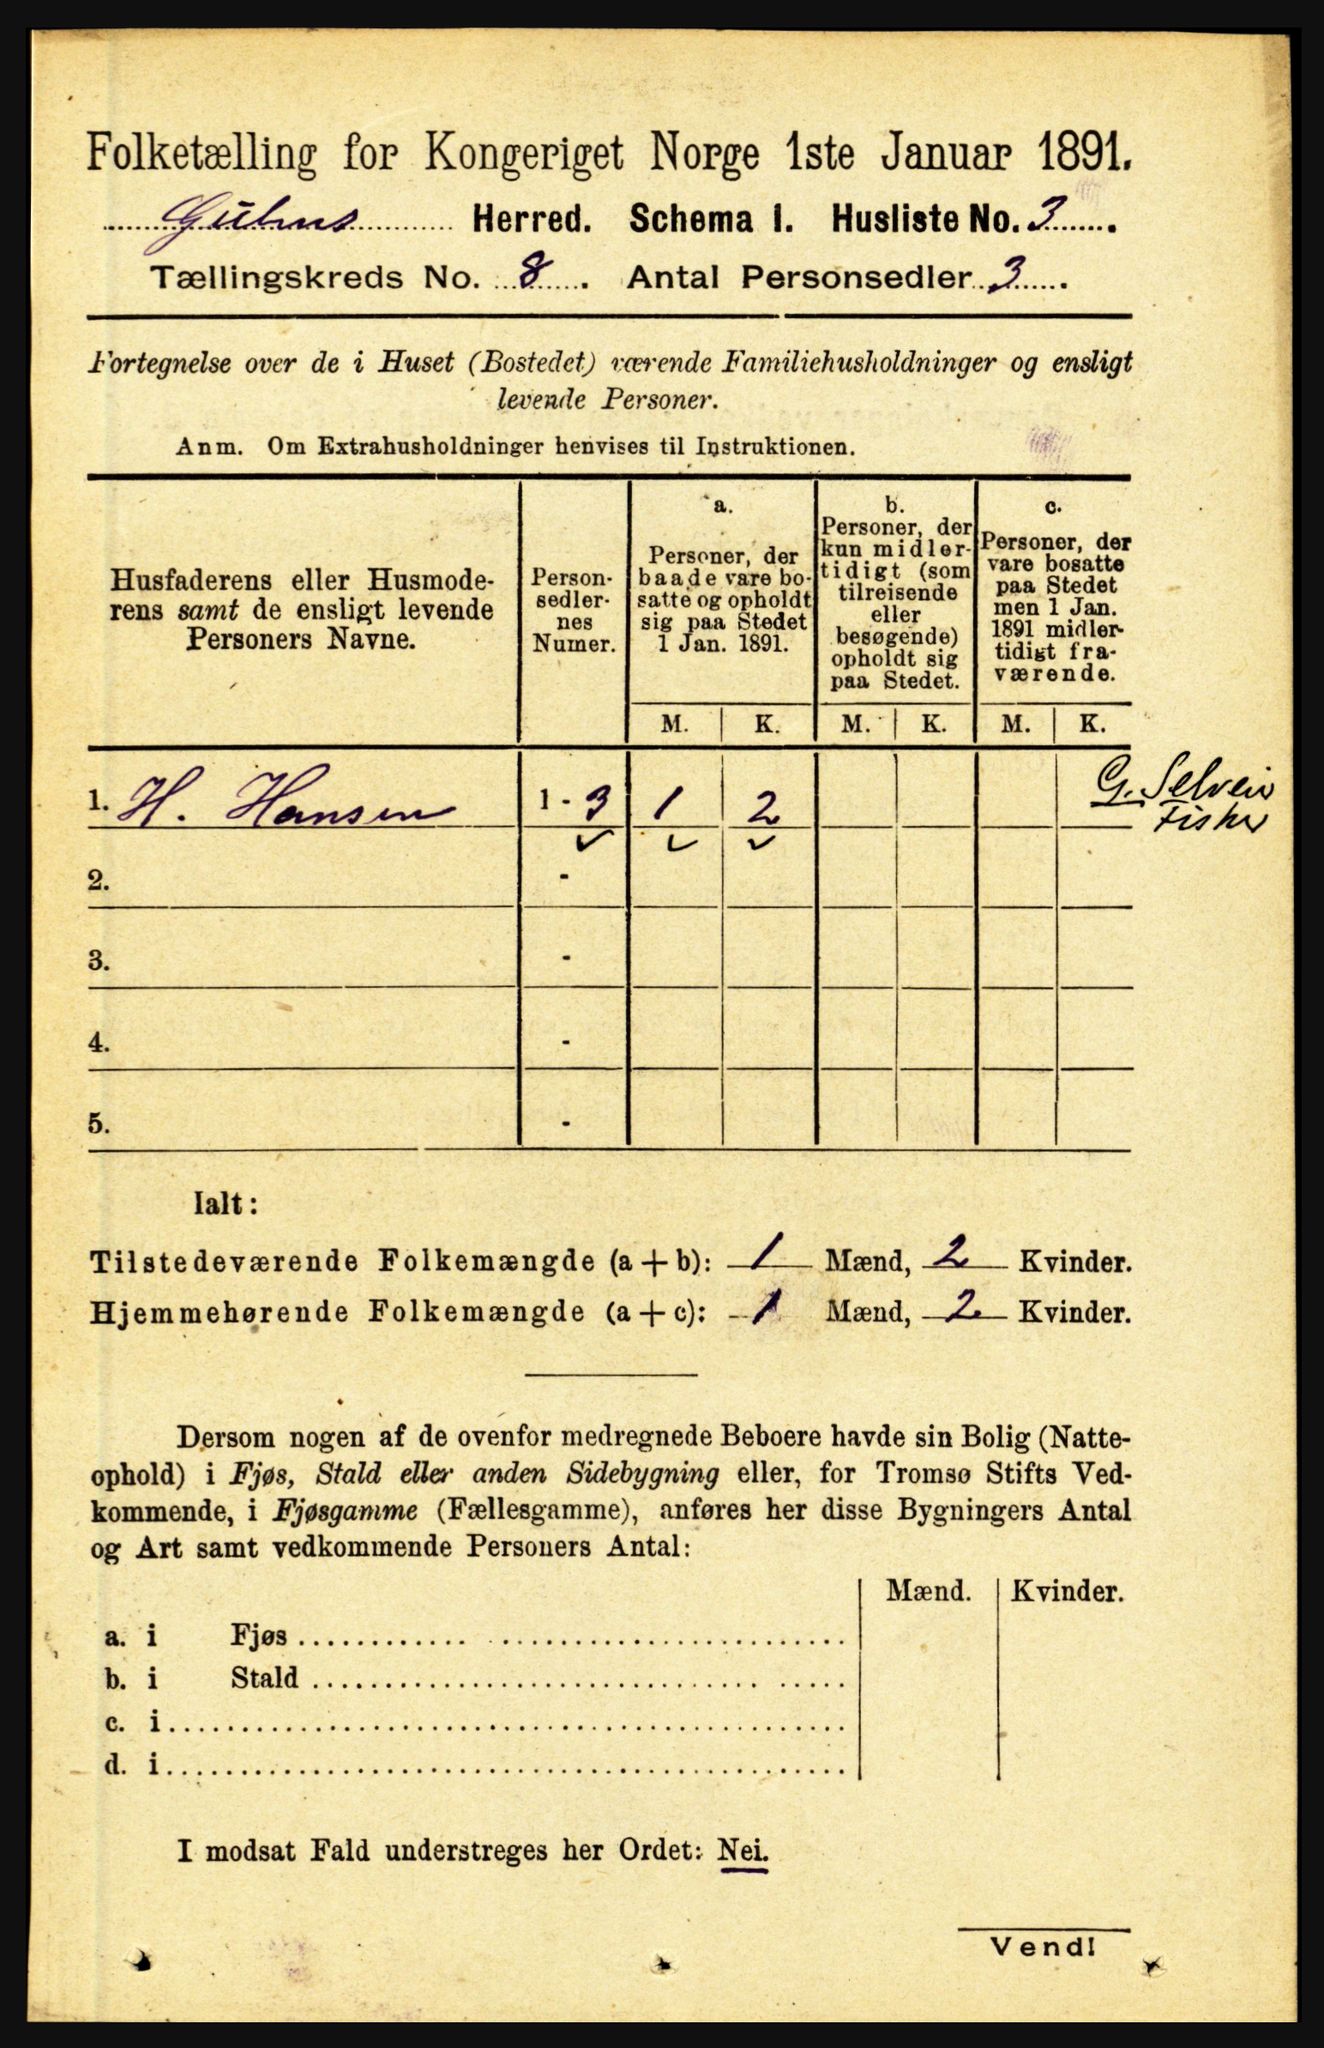 Folketælling for Kongeriget Norge 1ste Januar 1891.
Gulnes Herred. Schema 1. Husliste No. 3
Tællingskreds No. 8. Antal Personsedler 3.
Fortegnelse over de i Huset (Bostedet) værende Familiehusholdninger og ensligt
levende Personer.
Anm. Om Extrahusholdninger henvises til Instruktionen.
Husfaderens eller Husmode-
rens samt de ensligt levende
Personers Navne.
Person-
sedler-
nes
Numer.
a.
Personer, der
baade vare bo-
satte og opholdt
sig paa Stedet
1 Jan. 1891.
b.
Personer, der
kun midler-
tidigt (som
tilreisende
eller
besøgende)
opholdt sig
paa Stedet.
c.
Personer, der
vare bosatte
paa Stedet
men 1 Jan.
1891 midler-
tidigt fra-
værende.
M. K. M. K. M. K.
1. H. Hansen 1 - 3 1 2 G. Selveier
Fisker
2. -
3. -
4. -
5. -
Ialt:
Tilstedeværende Folkemængde (a + b): 1 Mænd, 2 Kvinder.
Hjemmehørende Folkemængde (a + c): 1 Mænd, 2 Kvinder.
Dersom nogen af de ovenfor medregnede Beboere havde sin Bolig (Natte-
ophold) i Fjøs, Stald eller anden Sidebygning eller, for Tromsø Stifts Ved-
kommende, i Fjøsgamme (Fællesgamme), anføres her disse Bygningers Antal
og Art samt vedkommende Personers Antal:
Mænd. Kvinder.
a. i Fjøs
b. i Stald
c. i
d. i
I modsat Fald understreges her Ordet: Nei.
Vend!